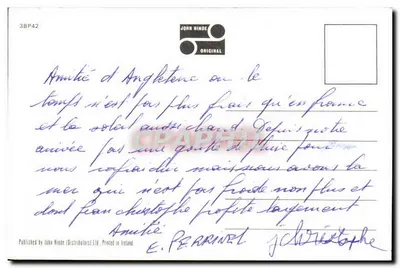 38P42
JOHN HINDE
ORIGINAL
Amitié d'Angleterre ou le
temps n'est pas plus frais qu'en france
et le soleil aussi chaud. Depuis notre
arrivée pas une goutte de pluie pour
nous rafraichir mais nous avons la
mer qui n'est pas froide non plus et
dont jean christophe profite largement
Amitié
E. PERRINEL
jchristophe
Published by John Hinde (Distributors) Ltd. Printed in Ireland